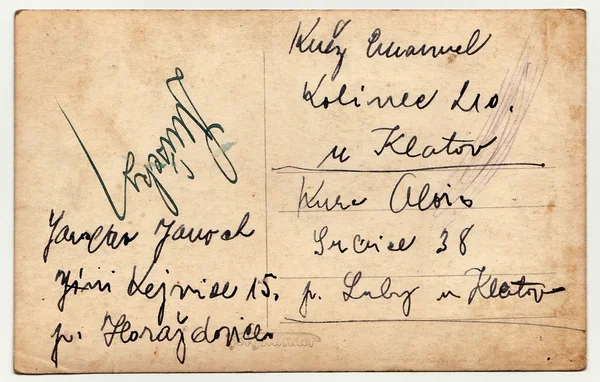 Kněz Emanuel
Kolinec 210.
u Klatov
Kurc Alois
Srbice 38
p. Luby u Klatov
Jaroslav Janoch
Jiří 15.
p. Horažďovice